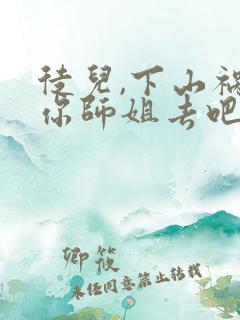 徒兒,下山禍
你師姐去吧
卿筱
未经同意禁止转载